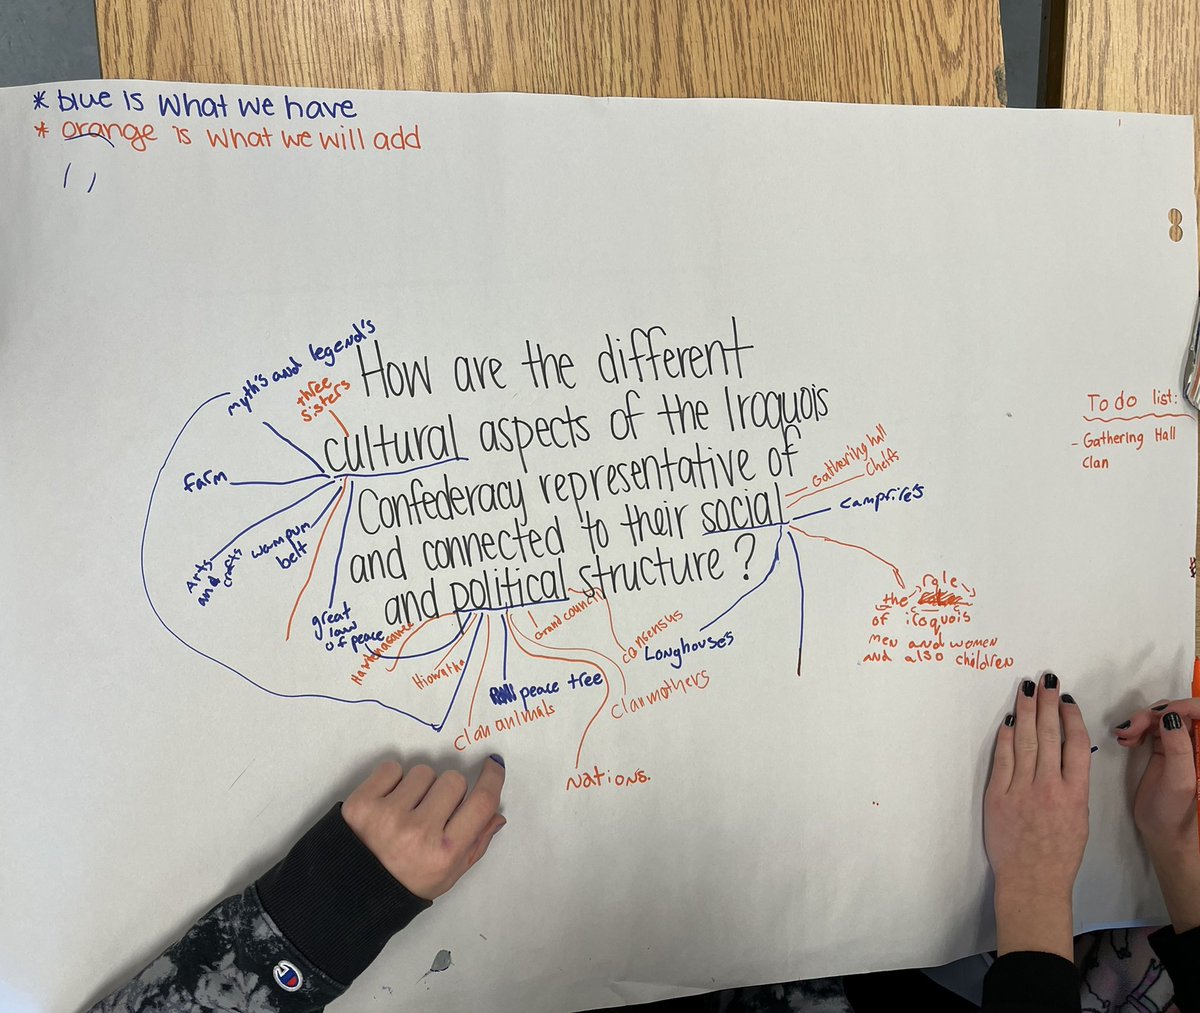 * blue is what we have
* orange is what we will add
How are the different
cultural aspects of the Iroquois
Confederacy representative of
and connected to their social
and political structure?
myth's and legend's
three
sisters
farm
Arts
and crafts
wampum
belt
great
law
of peace
Hiowatha
clan animals
peace tree
Nations.
clan mothers
Grand council
consensus
Longhouse's
Gathering hall
Cheifs
campfire's
the role
of iroquois
men and women
and also children
To do list:
- Gathering Hall
clan